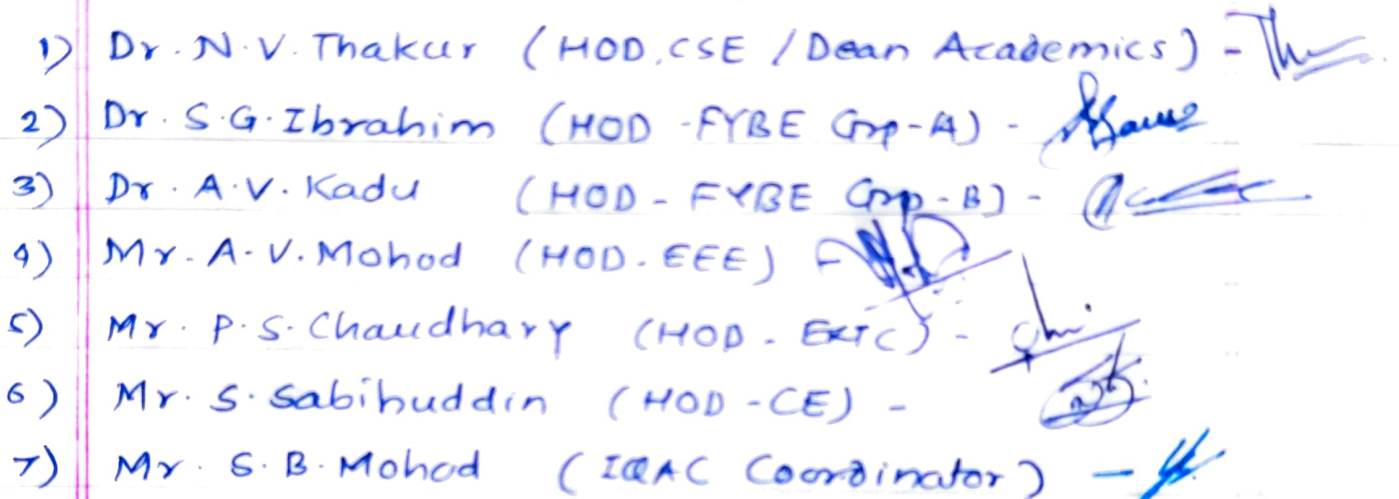 1) Dr. N. V. Thakur (HOD, CSE / Dean Academics) -
2) Dr. S. G. Ibrahim (HOD - FYBE Grp-A) -
3) Dr. A. V. Kadu (HOD - FYBE Grp-B) -
4) Mr. A. V. Mohod (HOD. EEE) -
5) Mr. P. S. Chaudhary (HOD - EXTC) -
6) Mr. S. Sabihuddin (HOD - CE) -
7) Mr. S. B. Mohod (IQAC Coordinator) -